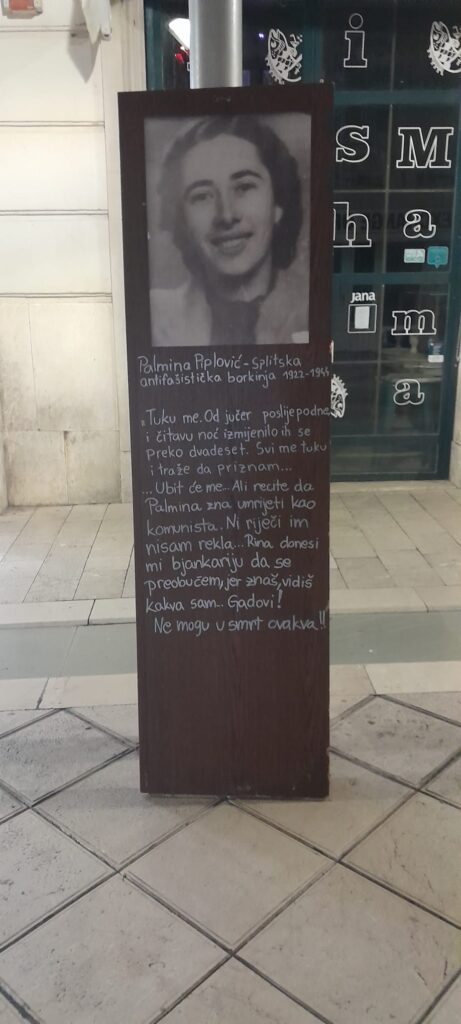 Palmina Piplović - splitska
antifašistička borkinja 1922-1944
„Tuku me. Od jučer poslijepodne
i čitavu noć izmijenilo ih se
preko dvadeset. Svi me tuku
i traže da priznam...
...Ubit će me... Ali recite da
Palmina zna umrijeti kao
komunista. Ni riječi im
nisam rekla... Rina donesi
mi bjankariju da se
preobučem, jer znaš, vidiš
kakva sam... Gadovi!
Ne mogu u smrt ovakva!!
i
s M
h a
jana
m
a